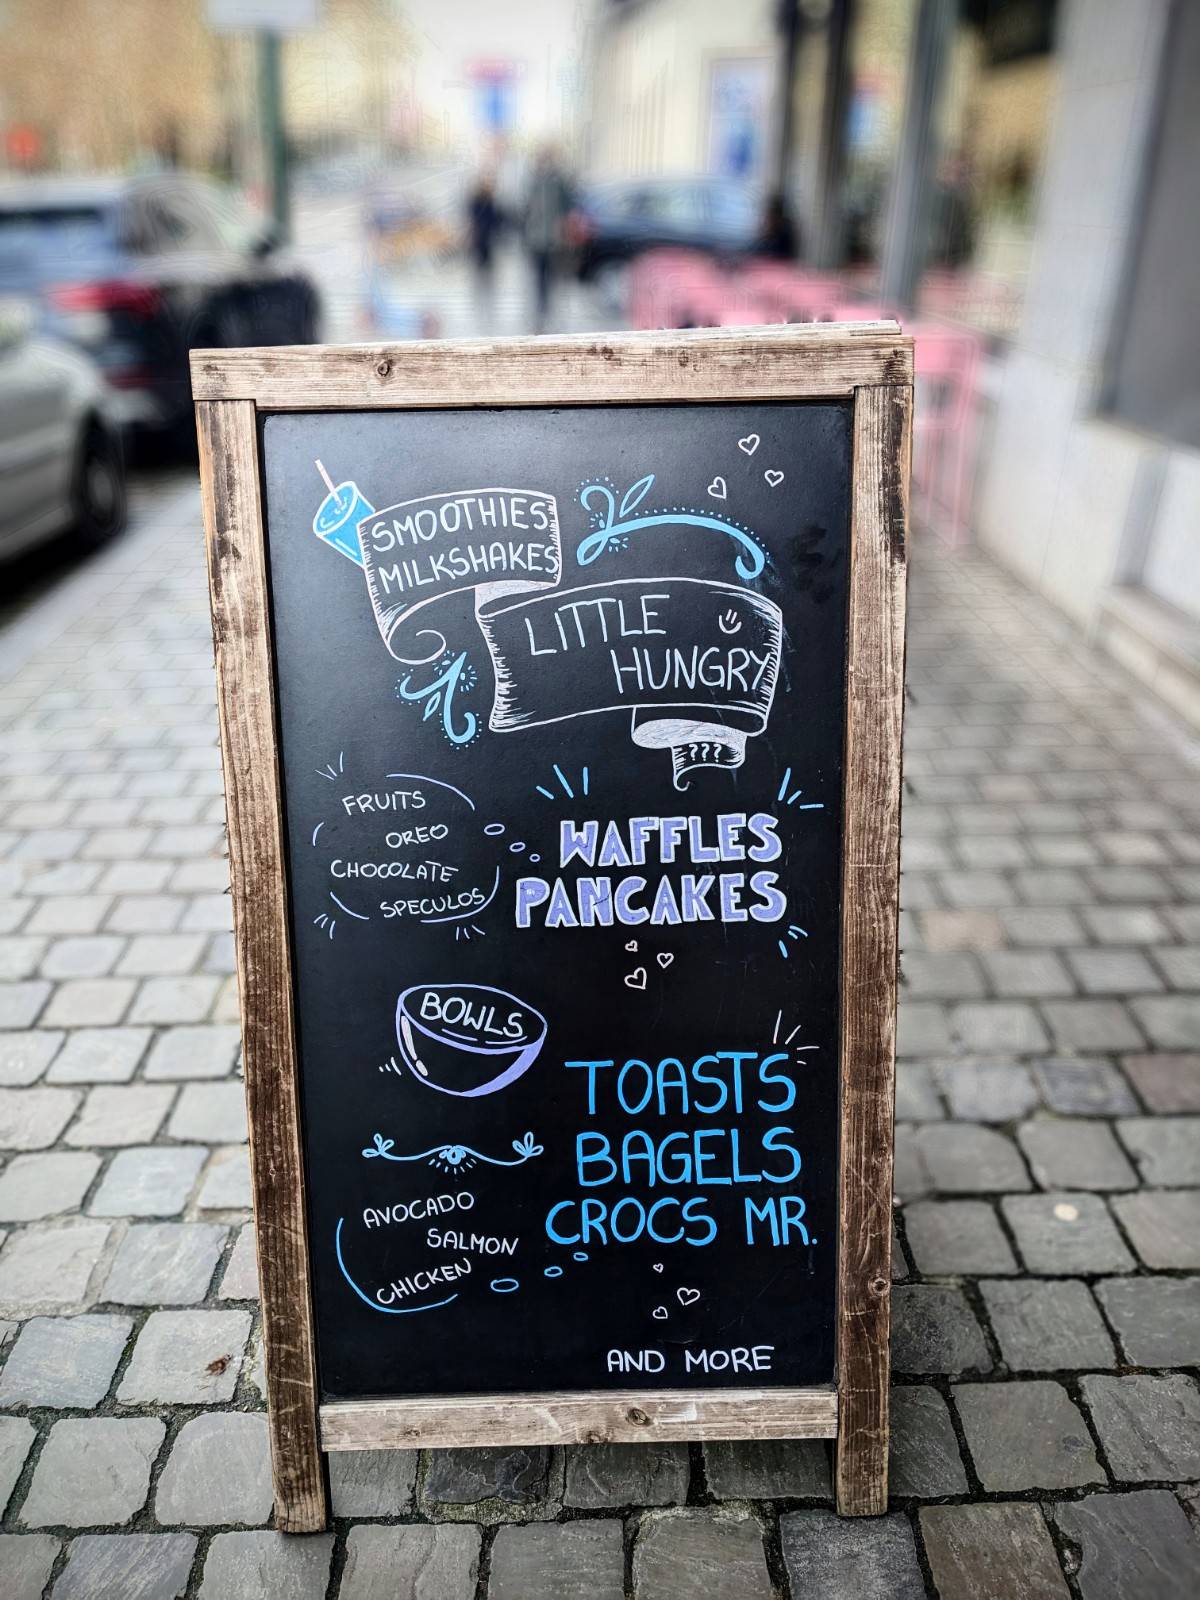 SMOOTHIES
MILKSHAKES
LITTLE
HUNGRY
???
FRUITS
OREO
CHOCOLATE
SPECULOS
WAFFLES
PANCAKES
BOWLS
TOASTS
BAGELS
CROCS MR.
AVOCADO
SALMON
CHICKEN
AND MORE